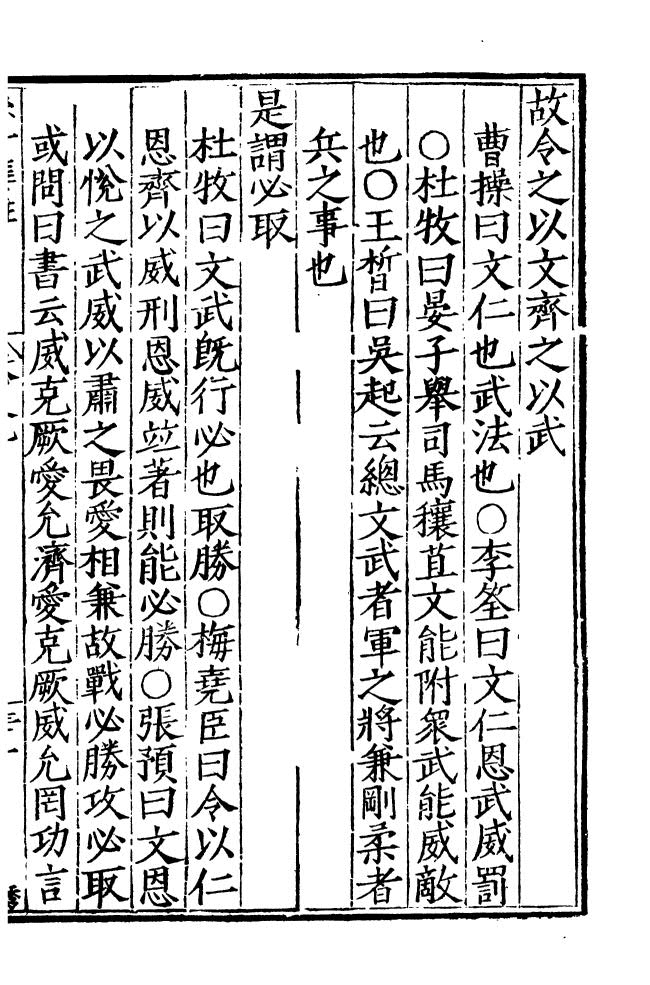 故令之以文齊之以武
曹操曰文仁也武法也○李筌曰文仁恩武威罰
○杜牧曰晏子舉司馬穰苴文能附衆武能威敵
也○王晳曰吳起云總文武者軍之將兼剛柔者
兵之事也
是謂必取
杜牧曰文武旣行必也取勝○梅堯臣曰令以仁
恩齊以威刑恩威竝著則能必勝○張預曰文恩
以悅之武威以肅之畏愛相兼故戰必勝攻必取
或問曰書云威克厥愛允濟愛克厥威允罔功言